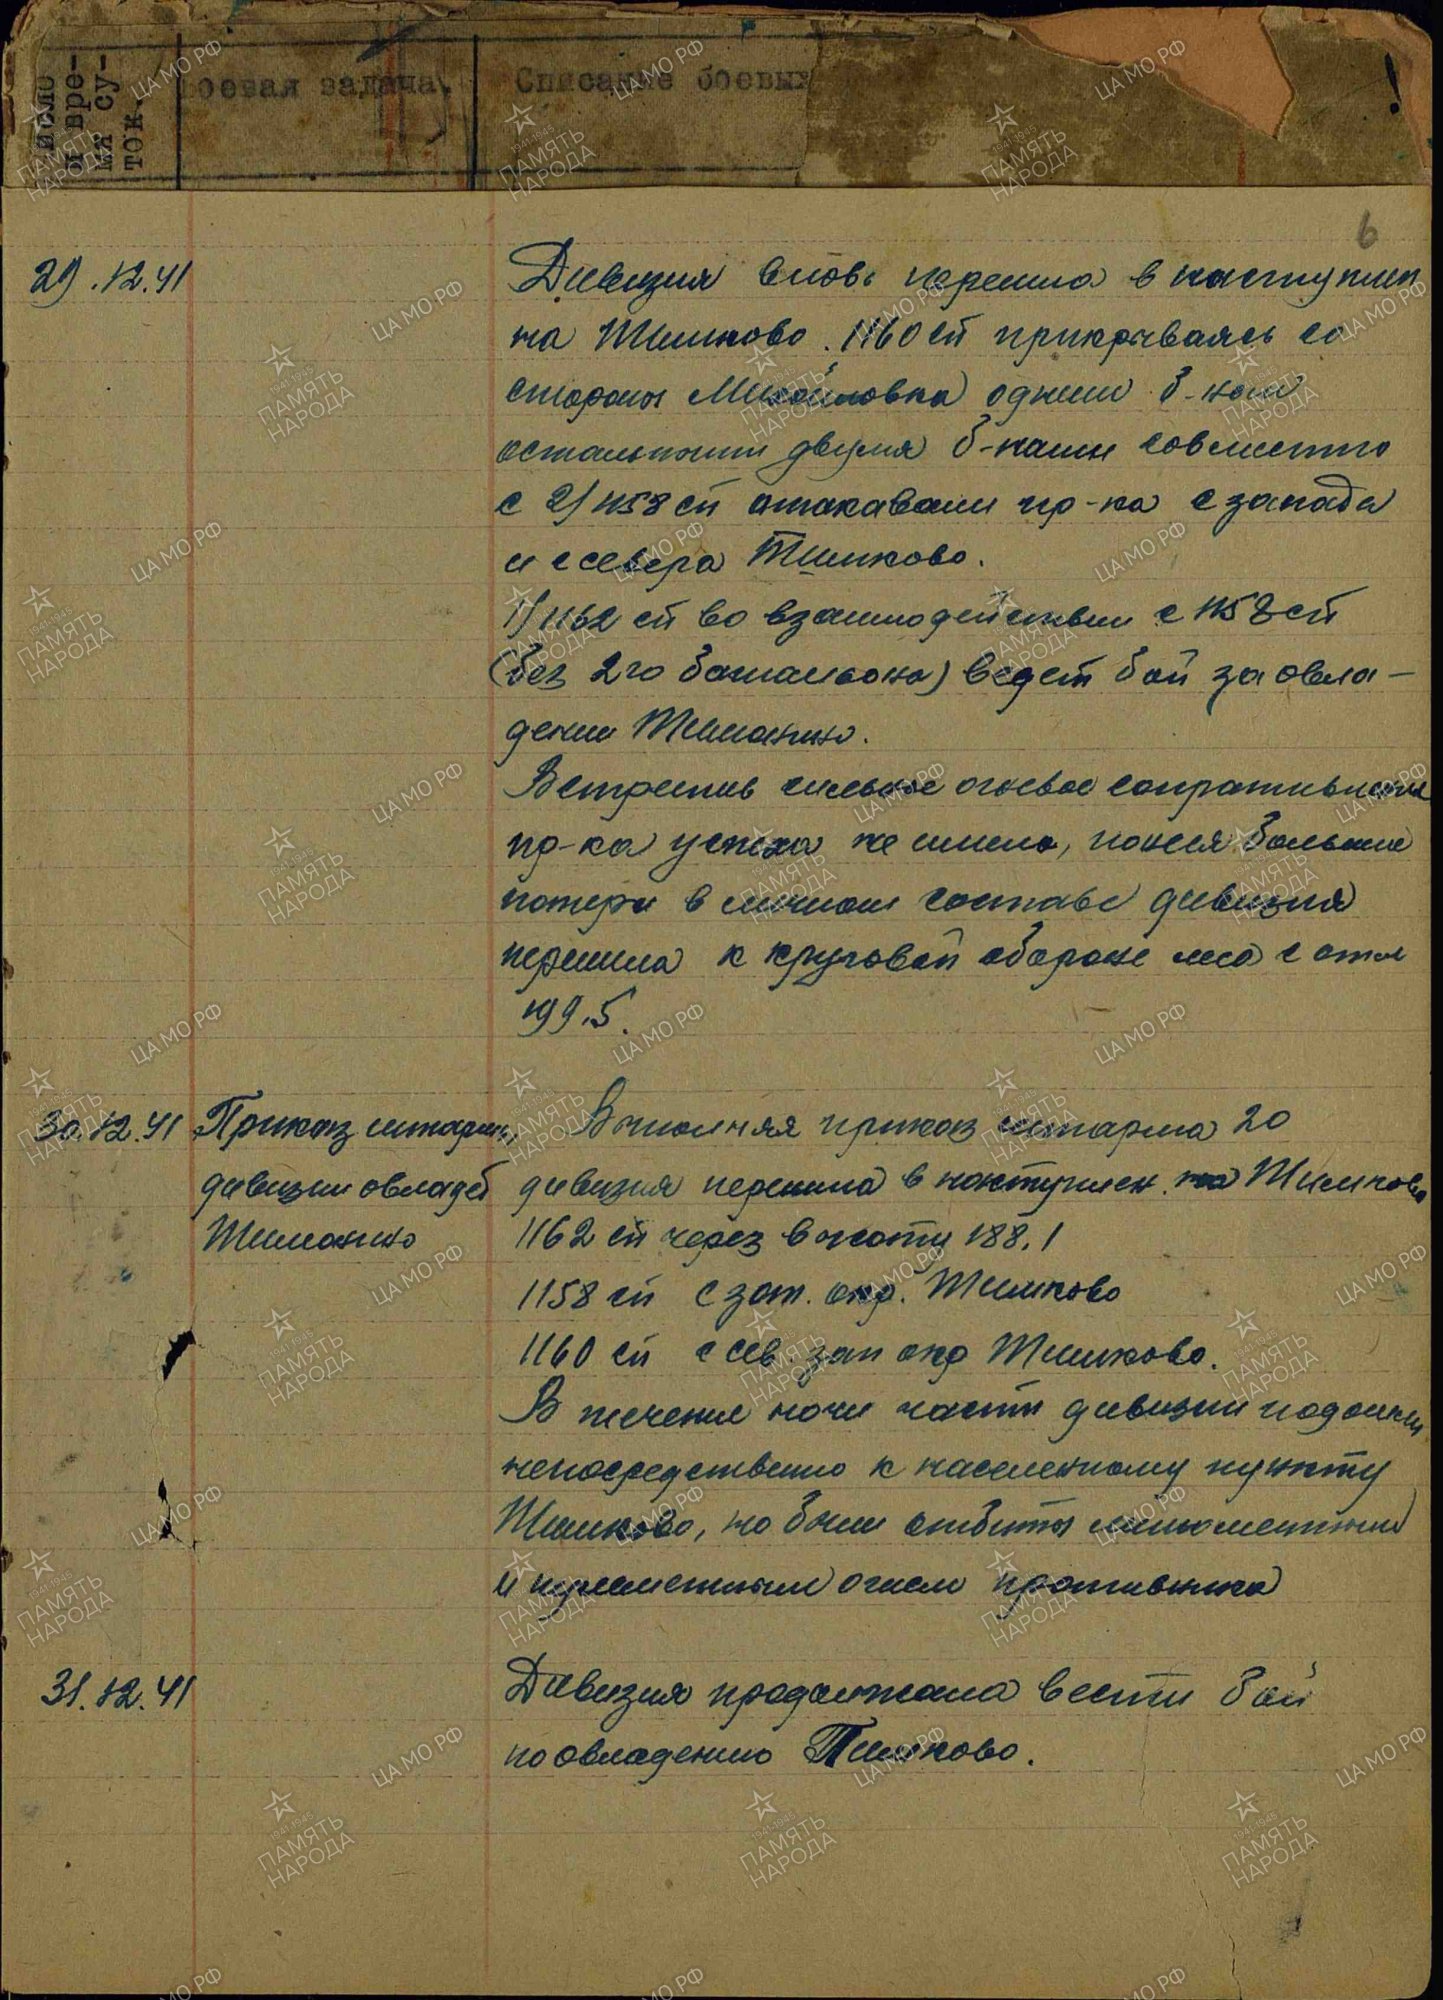 Число
и вре-
мя су-
ток.
Боевая задача.
Описание боевых
6
29.12.41
Дивизия вновь перешла в наступлен
на Тимково. 1160 сп прикрываясь со
стороны Михайловка одним б-ном
остальными двумя б-нами совместно
с 2/1158 сп атаковали пр-ка с запада
и севера Тимково.
1/1162 сп во взаимодействии с 1158 сп
(без 2го батальона) ведет бой за овла-
дении Тиманино.
Встретив сильное огневое сопративление
пр-ка успеха не имела, понеся большие
потери в личном составе дивизия
перешла к круговой обороне леса с отм
199.5.
30.12.41
Приказ штарма,
дивизии овладеть
Тиманино
Выполняя приказ штарма 20
дивизия перешла в наступлен. на Тимково
1162 сп через высоту 188.1
1158 сп с зап. окр. Тимково
1160 сп с сев. зап окр Тимково.
В течение ночи части дивизии подошли
непосредственно к населенному пункту
Тимково, но были отбиты минометным
и пулеметным огнем противника
31.12.41
Дивизия продолжала вести бой
по овладению Тимково.